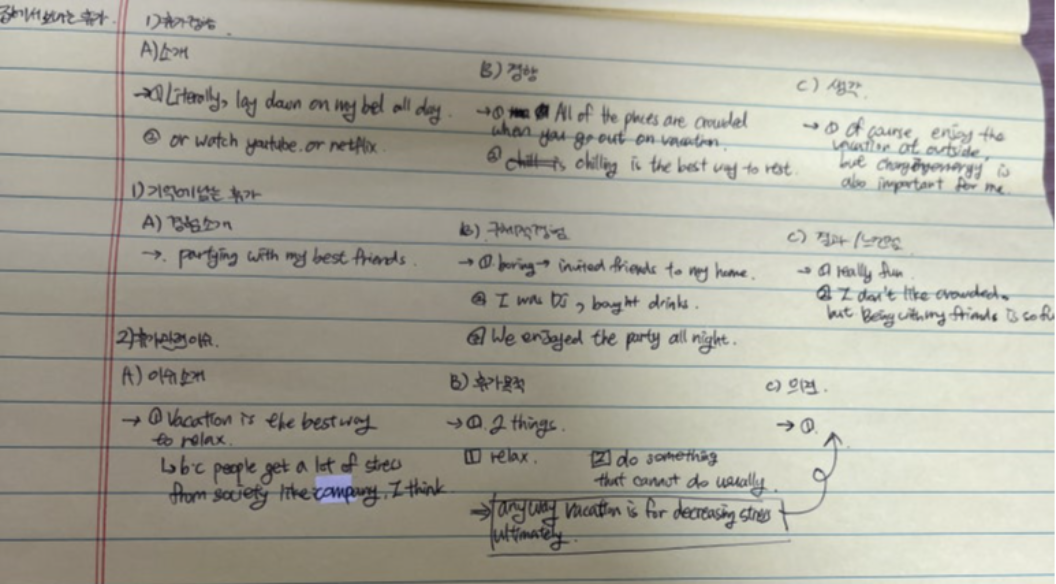 집에서 보내는 휴가.
1) 휴가경향
A) 소개
→① Literally, lay down on my bel all day.
② or watch youtube. or netflix.
B) 경향
→① All of the places are crowded
when you go out on vacation.
② chill is chilling is the best way to rest.
C) 생각
→ ① Of course, enjoy the
vacation at outside,
but charge energy is
also important for me.
1) 기억에 남는 휴가
A) 경험소개
→. partying with my best friends.
B). 구체적경험
→ ①. boring → invited friends to my home.
② I was DJ, bought drinks.
③ We enjoyed the party all night.
C) 결과/느낀점
→ ① really fun.
② I don't like crowded.
but Being with my friends is so fu
2) 휴가 이유.
A) 이유소개
→ ① Vacation is the best way
to relax.
↳ b.c people get a lot of stress
from society like company. I think.
B) 휴가목적
→①. 2 things.
1 relax.
2 do something
that cannot do usually.
→ anyway vacation is for decreasing stress
ultimately.
C) 의견.
→ ①.